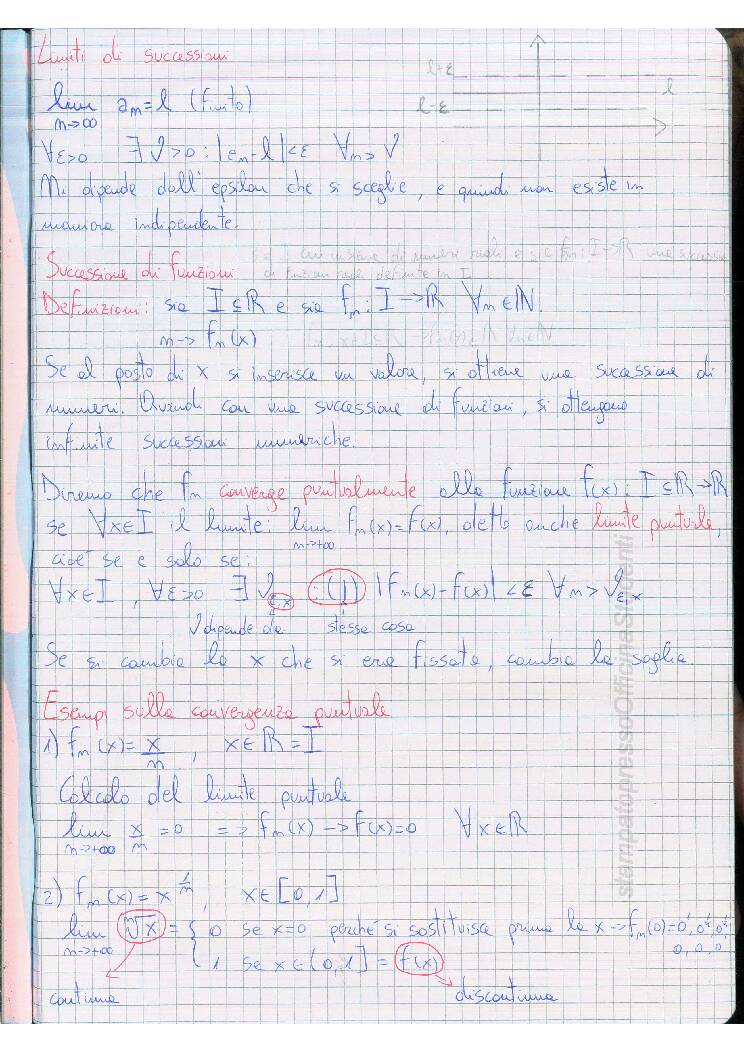 Limiti di successioni
l+ε
l
l-ε
lim aₙ = l (finito)
n→∞
∀ε>0 ∃ν>0 : |aₙ-l|<ε ∀n>ν
Ni dipende dall'epsilon che si sceglie, e quindi non esiste in
maniera indipendente.
Successione di funzioni
Definizioni: sia I⊆ℝ e sia fₙ: I→ℝ ∀n∈ℕ.
n→fₙ(x)
Se al posto di x si inserisce un valore, si ottiene una successione di
numeri. Quindi con una successione di funzioni, si ottengono
infinite successioni numeriche.
Diremo che fₙ converge puntualmente alla funzione f(x): I⊆ℝ→ℝ
se ∀x∈I il limite: lim fₙ(x)=f(x), detto anche limite puntuale,
n→+∞
cioè se e solo se:
∀x∈I, ∀ε>0 ∃ν_ε,x :(|) |fₙ(x)-f(x)|<ε ∀n>ν_ε,x
ν dipende da stessa cosa
Se si cambia la x che si era fissata, cambia la soglia.
Esempi sulla convergenza puntuale
1) fₙ(x)=x/n, x∈ℝ=I
Calcolo del limite puntuale
lim x/n =0 => fₙ(x)→f(x)=0 ∀x∈ℝ
n→+∞
2) fₙ(x)=x^(1/n), x∈[0,1]
lim ⁿ√x = { 0 se x=0 perché si sostituisce prima la x→fₙ(0)=
n→+∞
0,0,0
1 se x∈(0,1] = f(x)
continua discontinua
stampatopressoOfficinaStudenti